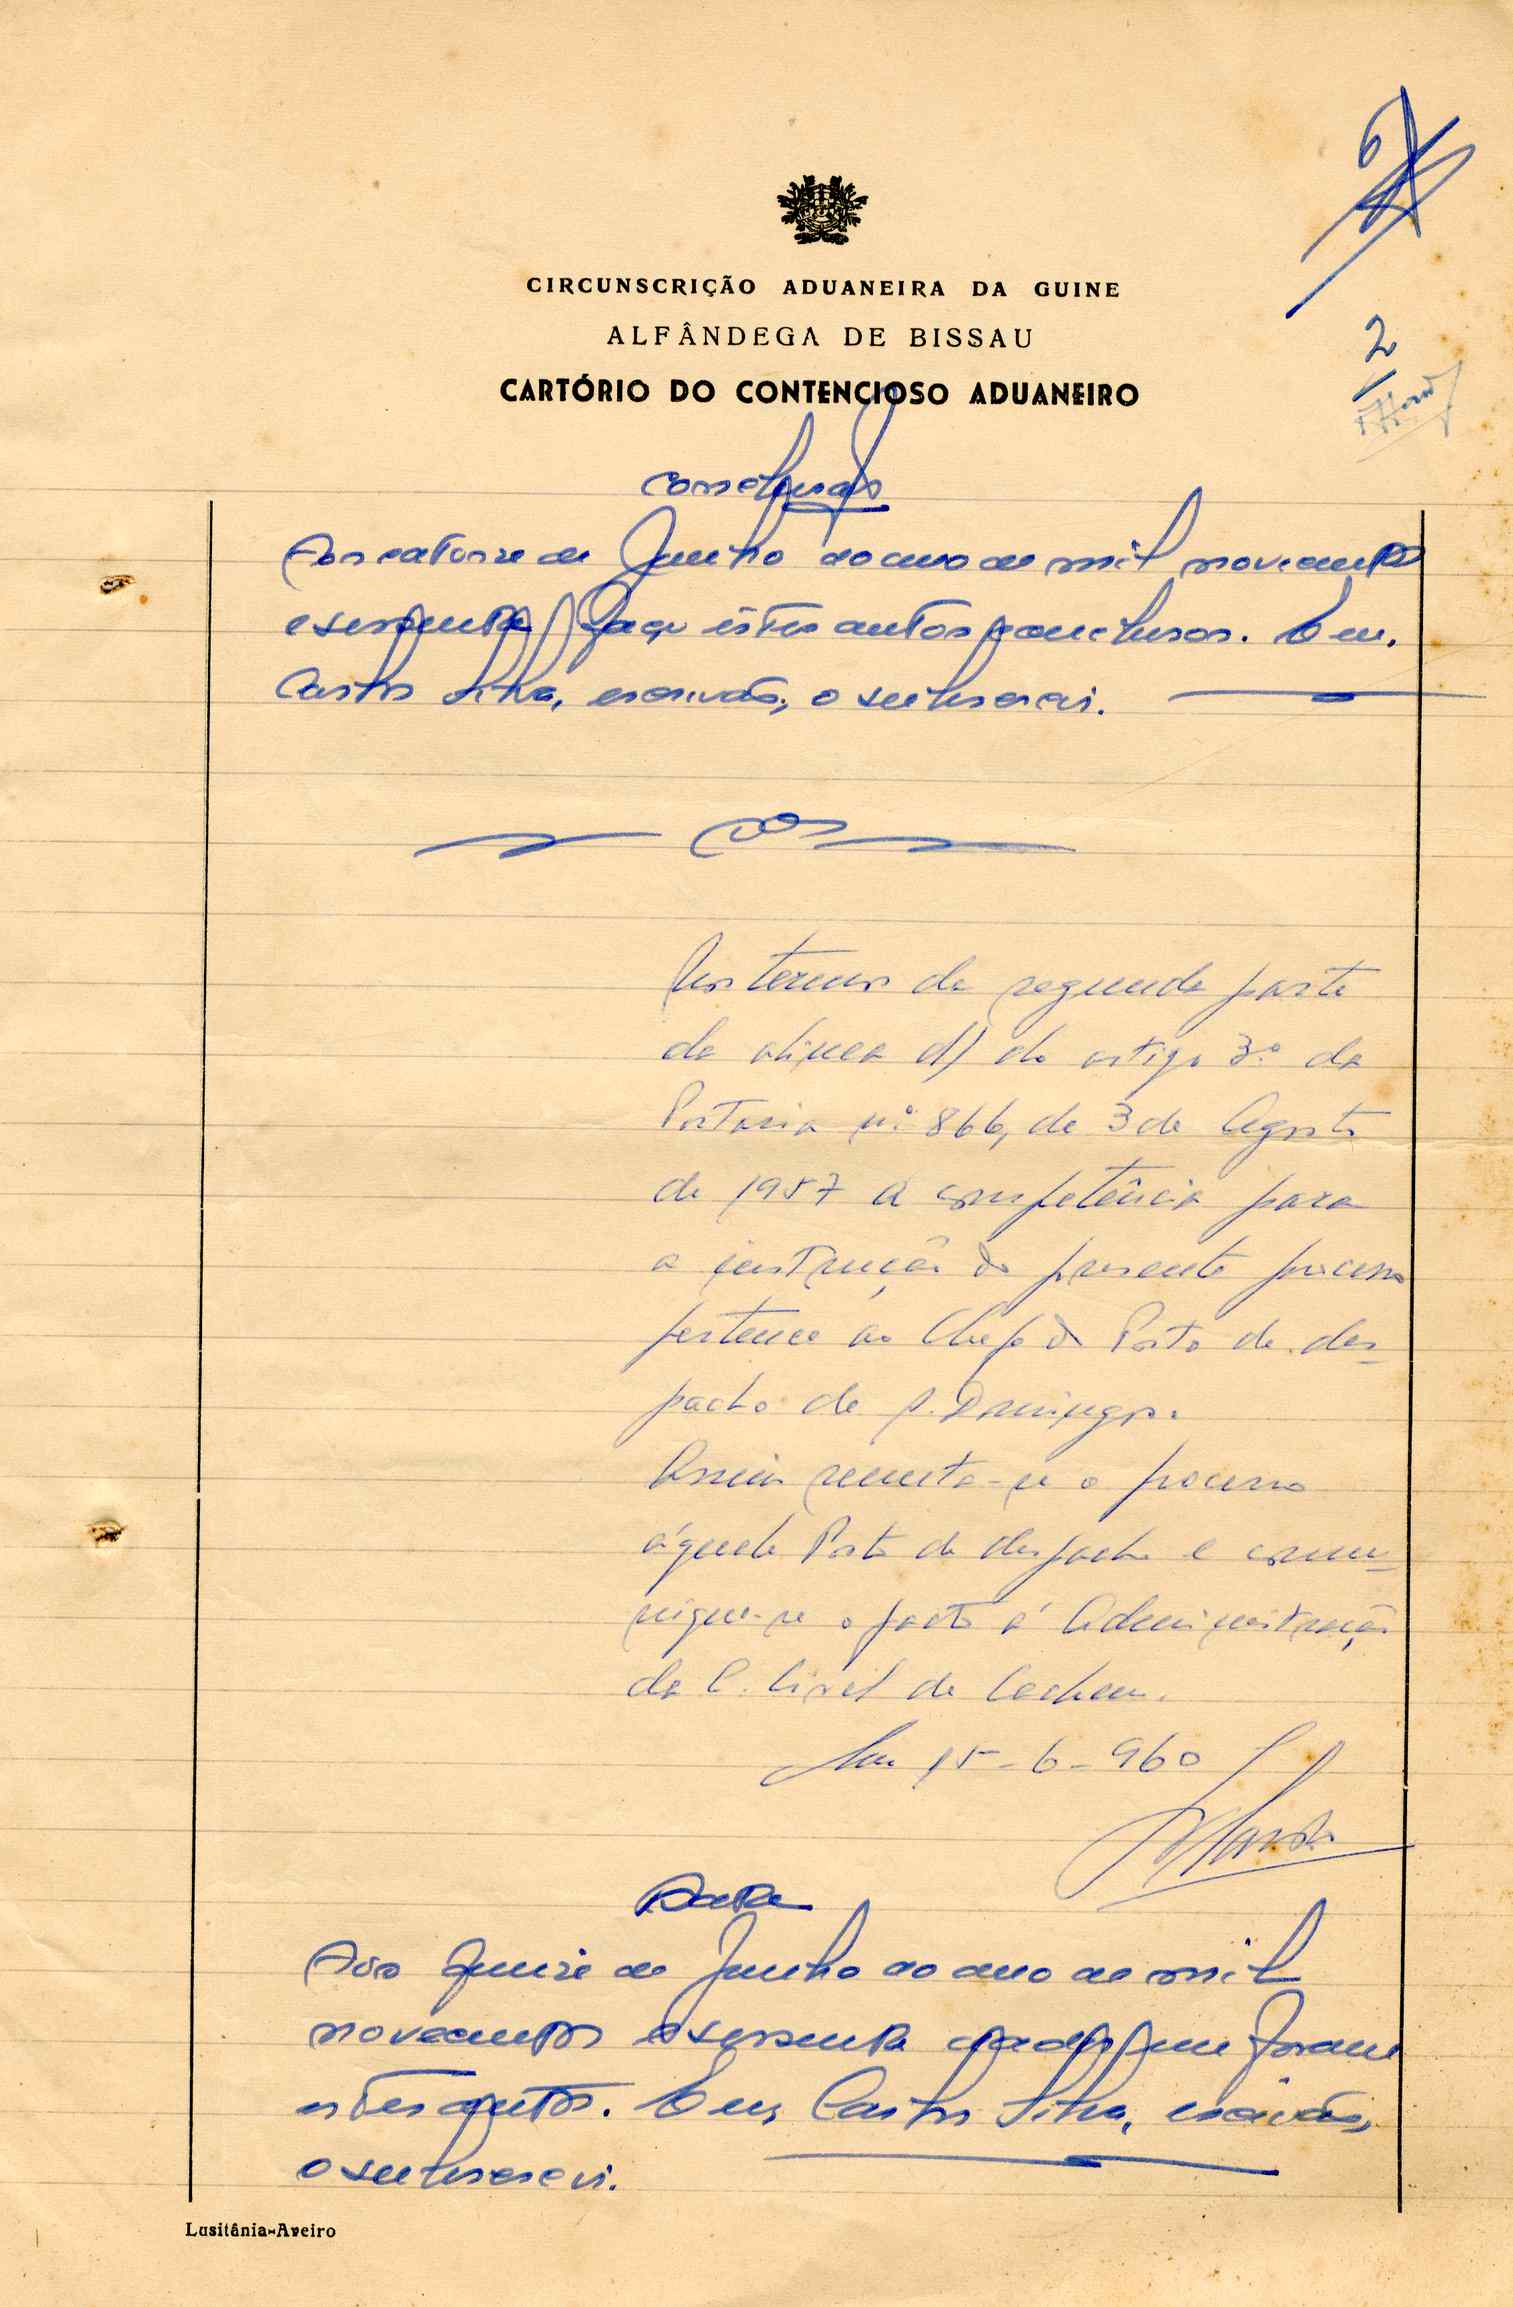 6
CIRCUNSCRIÇÃO ADUANEIRA DA GUINE
ALFÂNDEGA DE BISSAU
CARTÓRIO DO CONTENCIOSO ADUANEIRO
2
Conclusão
Aos catorze de Junho do ano de mil novecentos
e sessenta, faço êstes autos conclusos. E eu,
Castro Silva, escrivão, o subscrevi.
Nos termos da segunda parte
da alinea d) do artigo 3.º da
Portaria n.º 866, de 3 de Agosto
de 1957 a competência para
a instrução do presente processo
pertence ao Chefe do Posto de des-
pacho de S. Domingos.
Assim remeta-se o processo
áquele Posto de despacho e comu-
nique-se o facto á Administração
da C. Civil de Cacheu.
Em 15-6-960
Data
Aos quinze de Junho do ano de mil
novecentos e sessenta me foram
estes autos. E eu, Castro Silva, escrivão,
o subscrevi.
Lusitânia-Aveiro